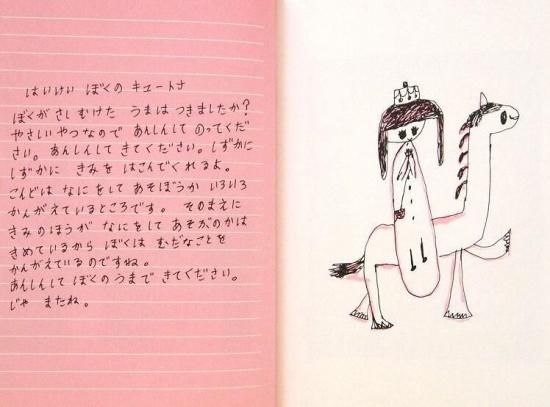 はいけい ぼくの キュートナ
ぼくがさしむけた うまはつきましたか?
やさしいやつなので あんしんして のってくだ
さい。あんしんして きてください。しずかに
しずかに きみを はこんでくれるよ。
こんどは なにをして あそぼうか いろいろ
かんがえているところです。 そのまえに
きみのほうが なにをして あそぶのかは
きめているから ぼくは むだなことを
かんがえているのですね。
あんしんして ぼくのうまで きてください。
じゃ またね。